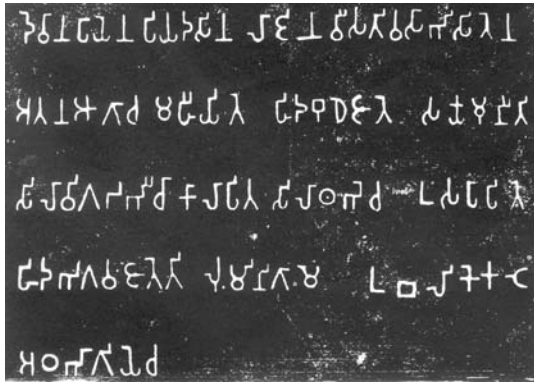 𑀤𑁂𑀯𑀸𑀦𑀧𑀺𑀬𑁂𑀦 𑀧𑀺𑀬𑀤𑀲𑀺𑀦 𑀮𑀸𑀚𑀺𑀦 𑀯𑀻𑀲𑀢𑀺𑀯𑀲𑀸𑀪𑀺𑀲𑀺𑀢𑁂𑀦
𑀅𑀢𑀦𑀆𑀕𑀸𑀘 𑀫𑀳𑀻𑀬𑀺𑀢𑁂 𑀳𑀺𑀤𑀩𑀼𑀥𑁂𑀚𑀸𑀢𑁂 𑀲𑀓𑁆𑀬𑀫𑀼𑀦𑀺𑀢𑀺
𑀲𑀺𑀮𑀸𑀯𑀺𑀕𑀟𑀪𑀻𑀘𑀸𑀓𑀸𑀮𑀸𑀧𑀺𑀢 𑀲𑀺𑀮𑀸𑀣𑀪𑁂𑀘 𑀉𑀲𑀧𑀸𑀧𑀺𑀢𑁂
𑀳𑀺𑀤𑀪𑀕𑀯𑀁𑀚𑀸𑀢𑁂𑀢𑀺 𑀮𑀼𑀁𑀫𑀺𑀦𑀺𑀕𑀸𑀫𑁂 𑀉𑀩𑀮𑀺𑀓𑁂𑀓𑀝𑁂
𑀅𑀞𑀪𑀸𑀕𑀺𑀬𑁂𑀘